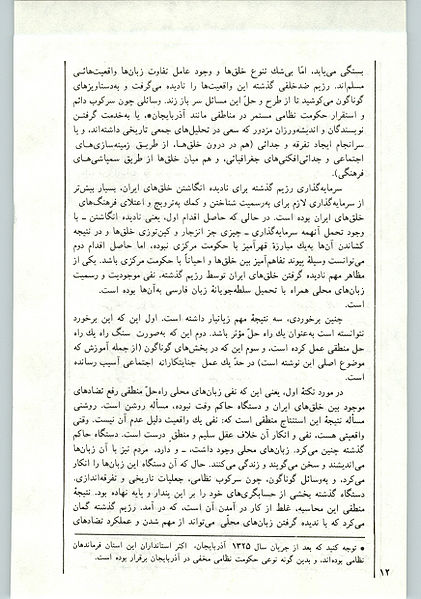 بستگی می‌یابد، امّا بی‌شك تنوع خلق‌ها و وجود عامل تفاوت زبان‌ها واقعیت‌هائی
مسلم‌اند. رژیم ضدخلقی گذشته این واقعیت‌ها را نادیده می‌گرفت و به‌دستاویزهای
گوناگون می‌کوشید تا از طرح و حلّ این مسائل سر باز زند. وسائلی چون سرکوب دائم
و استقرار حکومت نظامی مستمر در مناطقی مانند آذربایجان*، یا به‌خدمت گرفتن
نویسندگان و اندیشه‌ورزان مزدور که سعی در تحلیل‌های جمعی تاریخی داشته‌اند، و یا
سرانجام ایجاد تفرقه و جدائی (هم در درون خلق‌ها، از طریق زمینه‌سازی‌های
اجتماعی و جدائی‌افکنی‌های جغرافیائی، و هم میان خلق‌ها از طریق سمپاشی‌های
فرهنگی).
سرمایه‌گذاری رژیم گذشته برای نادیده انگاشتن خلق‌های ایران، بسیار بیش‌تر
از سرمایه‌گذاری لازم برای به‌رسمیت شناختن و کمك به‌ترویج و اعتلای فرهنگ‌های
خلق‌های ایران بوده است. در حالی که حاصل اقدام اول، یعنی نادیده انگاشتن ـ با
وجود تحمل آنهمه سرمایه‌گذاری ـ چیزی جز انزجار و کین‌توزی خلق‌ها و در نتیجه
کشاندن آن‌ها به‌یك مبارزهٔ قهرآمیز با حکومت مرکزی نبوده، اما حاصل اقدام دوم
می‌توانست وسیلهٔ پیوند تفاهم‌آمیز بین خلق‌ها و احیاناً با حکومت مرکزی باشد. یکی از
مظاهر مهم نادیده گرفتن خلق‌های ایران توسط رژیم گذشته، نفی موجودیت و رسمیت
زبان‌های محلی همراه با تحمیل سلطه‌جویانهٔ زبان فارسی به‌آن‌ها بوده است.
است.
چنین برخوردی، سه نتیجهٔ مهم زیانبار داشته است. اول این که این برخورد
نتوانسته است به‌عنوان یك راه حلّ مؤثر باشد. دوم این که به‌صورت سنگ راه یك راه
حل منطقی عمل کرده است، و سوم این که در بخش‌های گوناگون (از جمله آموزش که
موضوع اصلی این نوشته است) در حدّ یك عمل جنایتکارانه اجتماعی آسیب رسانده
است.
در مورد نکتهٔ اول، یعنی این که نفی زبان‌های محلی راه‌حلّ منطقی رفع تضادهای
موجود بین خلق‌های ایران و دستگاه حاکم وقت نبوده، مسأله روشن است. روشنی
مسأله نتیجهٔ این استنتاج منطقی است که: نفی یك واقعیت دلیل عدم آن نیست. وقتی
واقعیتی هست، نفی و انکار آن خلاف عقل سلیم و منطق درست است. دستگاه حاکم
گذشته چنین می‌کرد. زبان‌های محلی وجود داشت، ـ و دارد، مردم نیز با آن زبان‌ها
می‌اندیشند و سخن می‌گویند و زندگی می‌کنند. حال که آن دستگاه این زبان‌ها را انکار
می‌کرد، و به‌وسائل گوناگون، چون سرکوب نظامی، جعلیات تاریخی و تفرقه‌اندازی.
دستگاه گذشته بخشی از حسابگری‌های خود را بر این پندار و پایه نهاده بود. نتیجهٔ
منطقی این محاسبه، غلط از کار در آمدن آن است، که در آمد. رژیم گذشته گمان
می‌کرد که با ندیده گرفتن زبان‌های محلّی، می‌تواند از مهم شدن و عملکرد تضادهای
* توجه کنید که بعد از جریان سال ۱۳۲۵ آذربایجان، اکثر استانداران این استان فرماندهان
نظامی بوده‌اند، و بدین گونه نوعی حکومت نظامی مخفی در آذربایجان برقرار بوده است.
۱۲